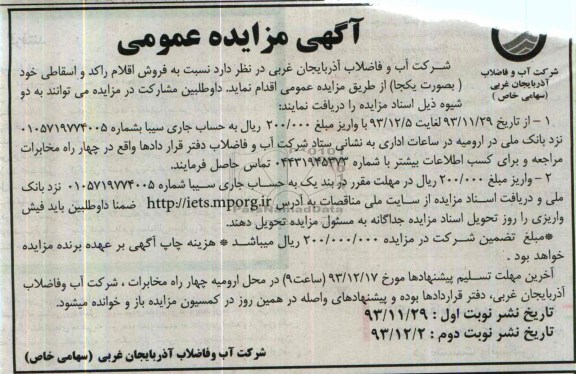 آگهی مزایده عمومی
شرکت آب و فاضلاب
آذربایجان غربی
(سهامی خاص)
شرکت آب و فاضلاب آذربایجان غربی در نظر دارد نسبت به فروش اقلام راکد و اسقاطی خود
( بصورت یکجا) از طریق مزایده عمومی اقدام نماید. داوطلبین مشارکت در مزایده می توانند به دو
شیوه ذیل اسناد مزایده را دریافت نمایند:
۱ – از تاریخ ۹۳/۱۱/۲۹ لغایت ۹۳/۱۲/۵ با واریز مبلغ ۲۰۰/۰۰۰ ریال به حساب جاری سیبا بشماره ۰۱۰۵۷۱۹۷۷۴۰۰۵
نزد بانک ملی در ارومیه در ساعات اداری به نشانی ستاد شرکت آب و فاضلاب دفتر قرار دادها واقع در چهار راه مخابرات
مراجعه و برای کسب اطلاعات بیشتر با شماره ۰۴۴۳۱۹۴۵۳۷۳ تماس حاصل فرمایند.
۲ – واریز مبلغ ۲۰۰/۰۰۰ ریال در مهلت مقرر در بند یک به حساب جاری سیبا شماره ۰۱۰۵۷۱۹۷۷۴۰۰۵ نزد بانک
ملی و دریافت اسناد مزایده از سایت ملی مناقصات به آدرس http://iets.mporg.ir ضمنا داوطلبین باید فیش
واریزی را روز تحویل اسناد مزایده جداگانه به مسئول مزایده تحویل دهند.
*مبلغ تضمین شرکت در مزایده ۲۰۰/۰۰۰/۰۰۰ ریال میباشد * هزینه چاپ آگهی بر عهده برنده مزایده
خواهد بود .
آخرین مهلت تسلیم پیشنهادها مورخ ۹۳/۱۲/۱۷ (ساعت۹) در محل ارومیه چهار راه مخابرات ، شرکت آب وفاضلاب
آذربایجان غربی، دفتر قراردادها بوده و پیشنهادهای واصله در همین روز در کمسیون مزایده باز و خوانده میشود.
تاریخ نشر نوبت اول : ۹۳/۱۱/۲۹
تاریخ نشر نوبت دوم : ۹۳/۱۲/۲
شرکت آب وفاضلاب آذربایجان غربی (سهامی خاص)